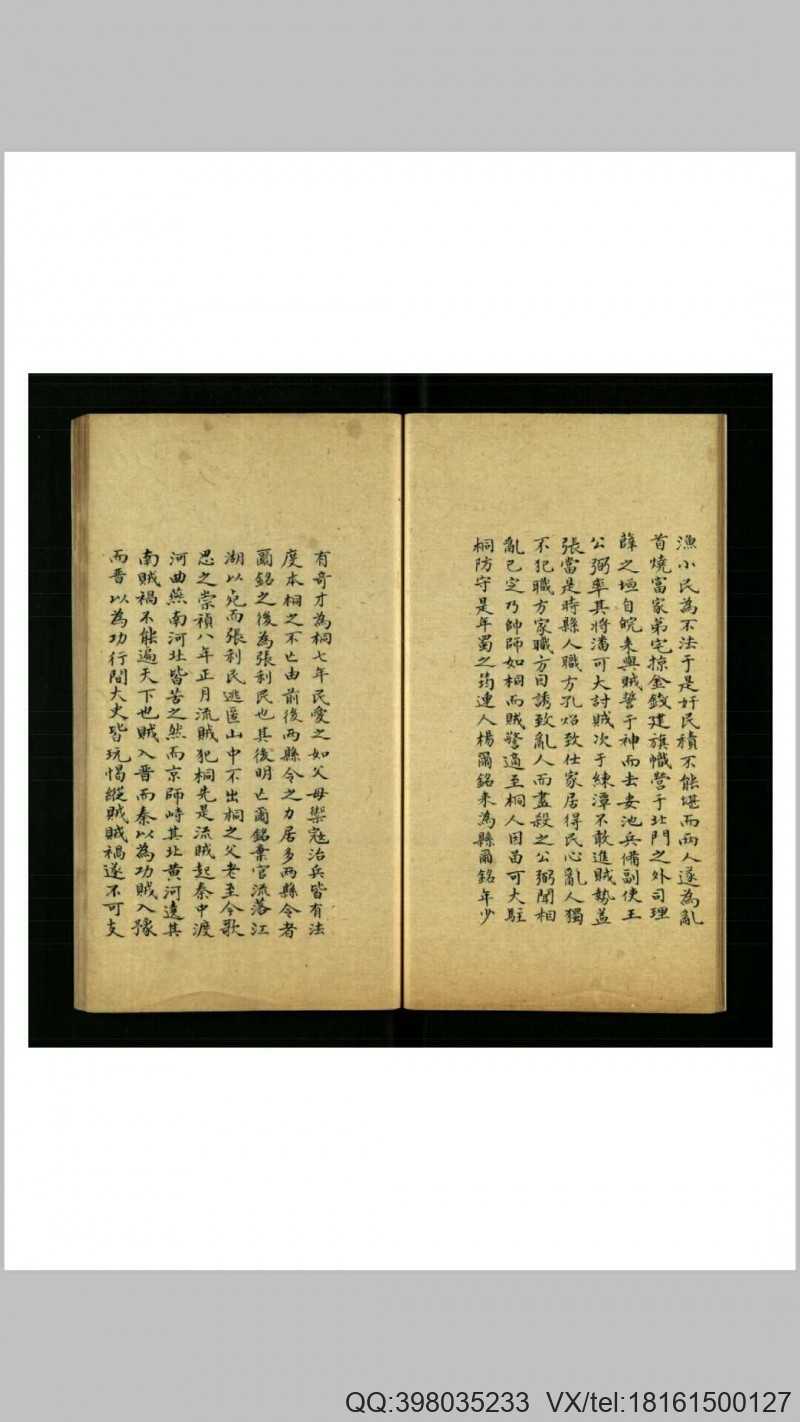 漁小民為不法于是奸民積不能堪而兩人遂為亂
首燒富家第宅掠金錢建旗幟營于北門之外司理
薛之垣自皖来與賊誓于神而去安池兵備副使王
公弼率其將潘可大討賊次于練潭不敢進賊勢益
張當是時縣人職方孔炤致仕家居得民心亂人獨
不犯職方家職方因誘致亂人而盡殺之公弼聞相
亂已定乃帥師如桐而賊警適至桐人因留可大駐
桐防守是年蜀之筠連人楊爾銘来為縣爾銘年少
有奇才為桐七年民愛之如父母禦寇治兵皆有法
度本桐之不亡由前後兩縣令之力居多兩縣令者
爾銘之後為張利民也其後明亡爾銘棄官流落江
湖以死而張利民逃匿山中不出桐之父老至今歌
思之崇禎八年正月流賊犯桐先是流賊起秦中渡
河曲燕南河北皆苦之然而京師峙其北黄河遶其
南賊禍不能遍天下也賊入晋而秦以為功賊入豫
而晋以為功行間大吏皆玩愒縱賊賊禍遂不可支
QQ:398035233 VX/tel:18161500127